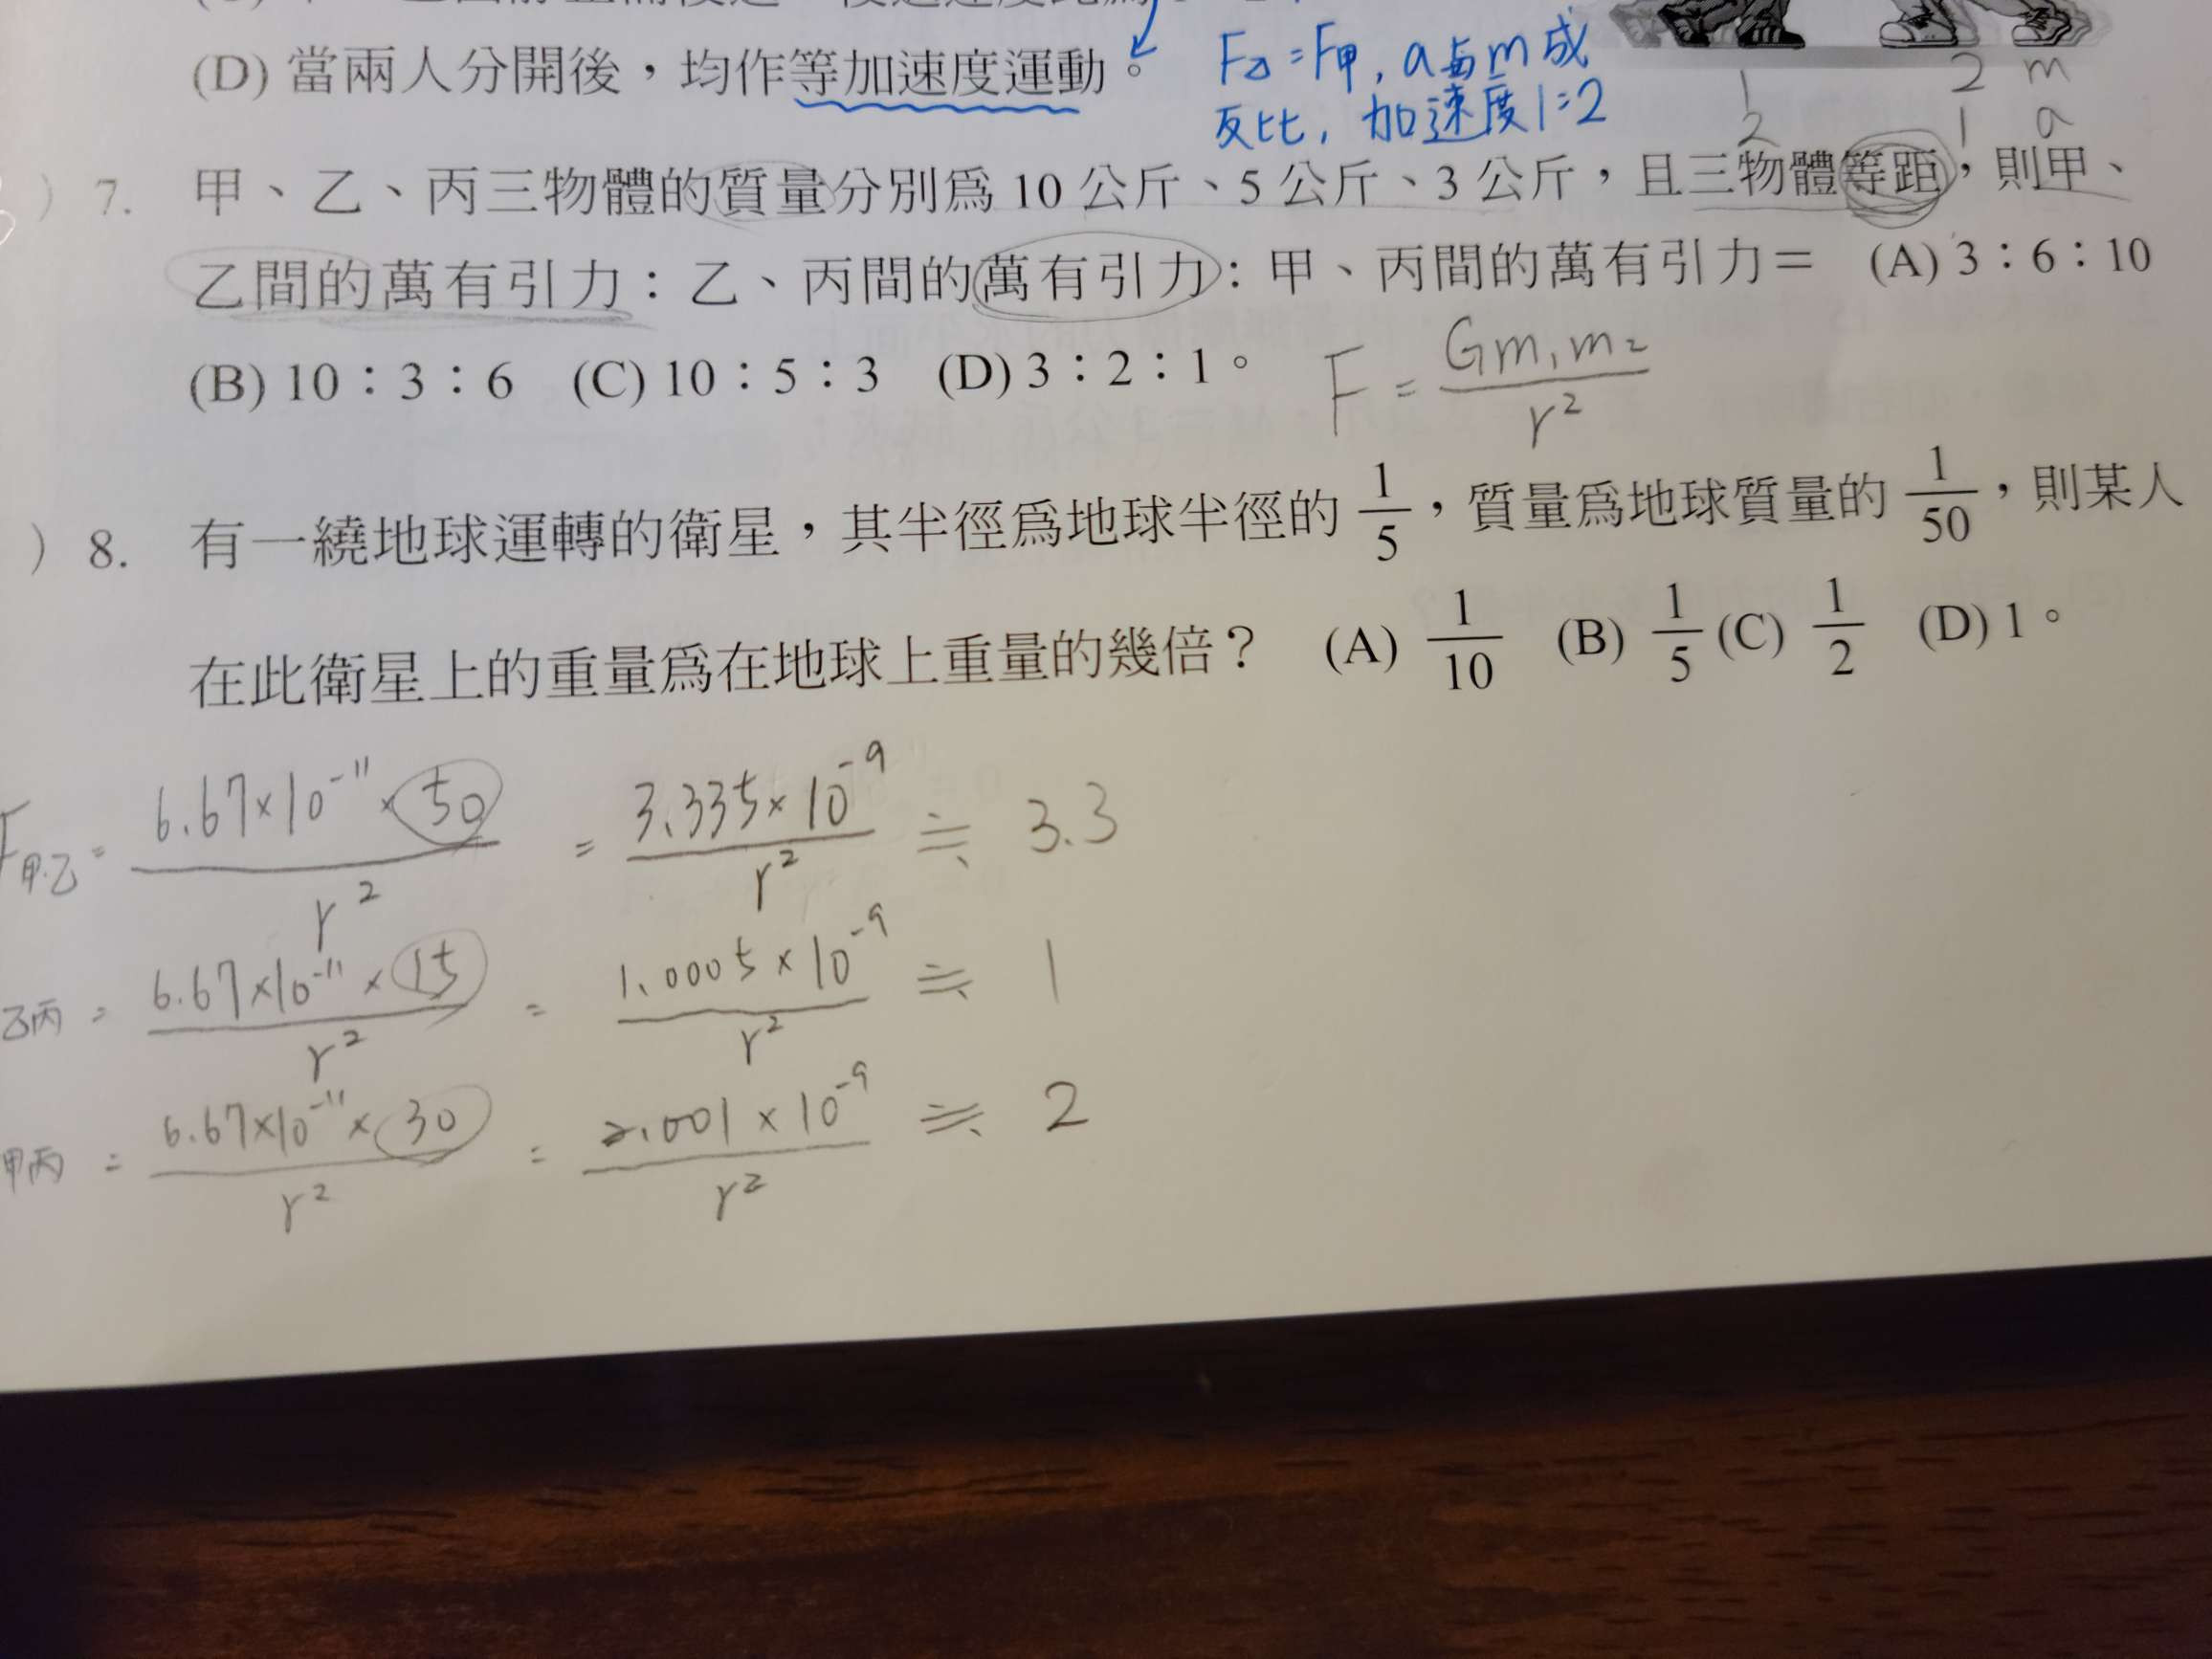 (D) 當兩人分開後，均作等加速度運動。
F乙=F甲, a與m成
反比, 加速度1:2
1 2 m
2 1 a
) 7. 甲、乙、丙三物體的質量分別爲 10 公斤、5 公斤、3 公斤，且三物體等距，則甲、
乙間的萬有引力：乙、丙間的萬有引力：甲、丙間的萬有引力＝ (A) 3：6：10
(B) 10：3：6 (C) 10：5：3 (D) 3：2：1。
F = Gm₁m₂/r²
) 8. 有一繞地球運轉的衛星，其半徑爲地球半徑的 1/5，質量爲地球質量的 1/50，則某人
在此衛星上的重量爲在地球上重量的幾倍？ (A) 1/10 (B) 1/5 (C) 1/2 (D) 1。
F甲乙 = 6.67×10⁻¹¹×50/r² = 3.335×10⁻⁹/r² ≒ 3.3
乙丙 = 6.67×10⁻¹¹×15/r² = 1.0005×10⁻⁹/r² ≒ 1
甲丙 = 6.67×10⁻¹¹×30/r² = 2.001×10⁻⁹/r² ≒ 2